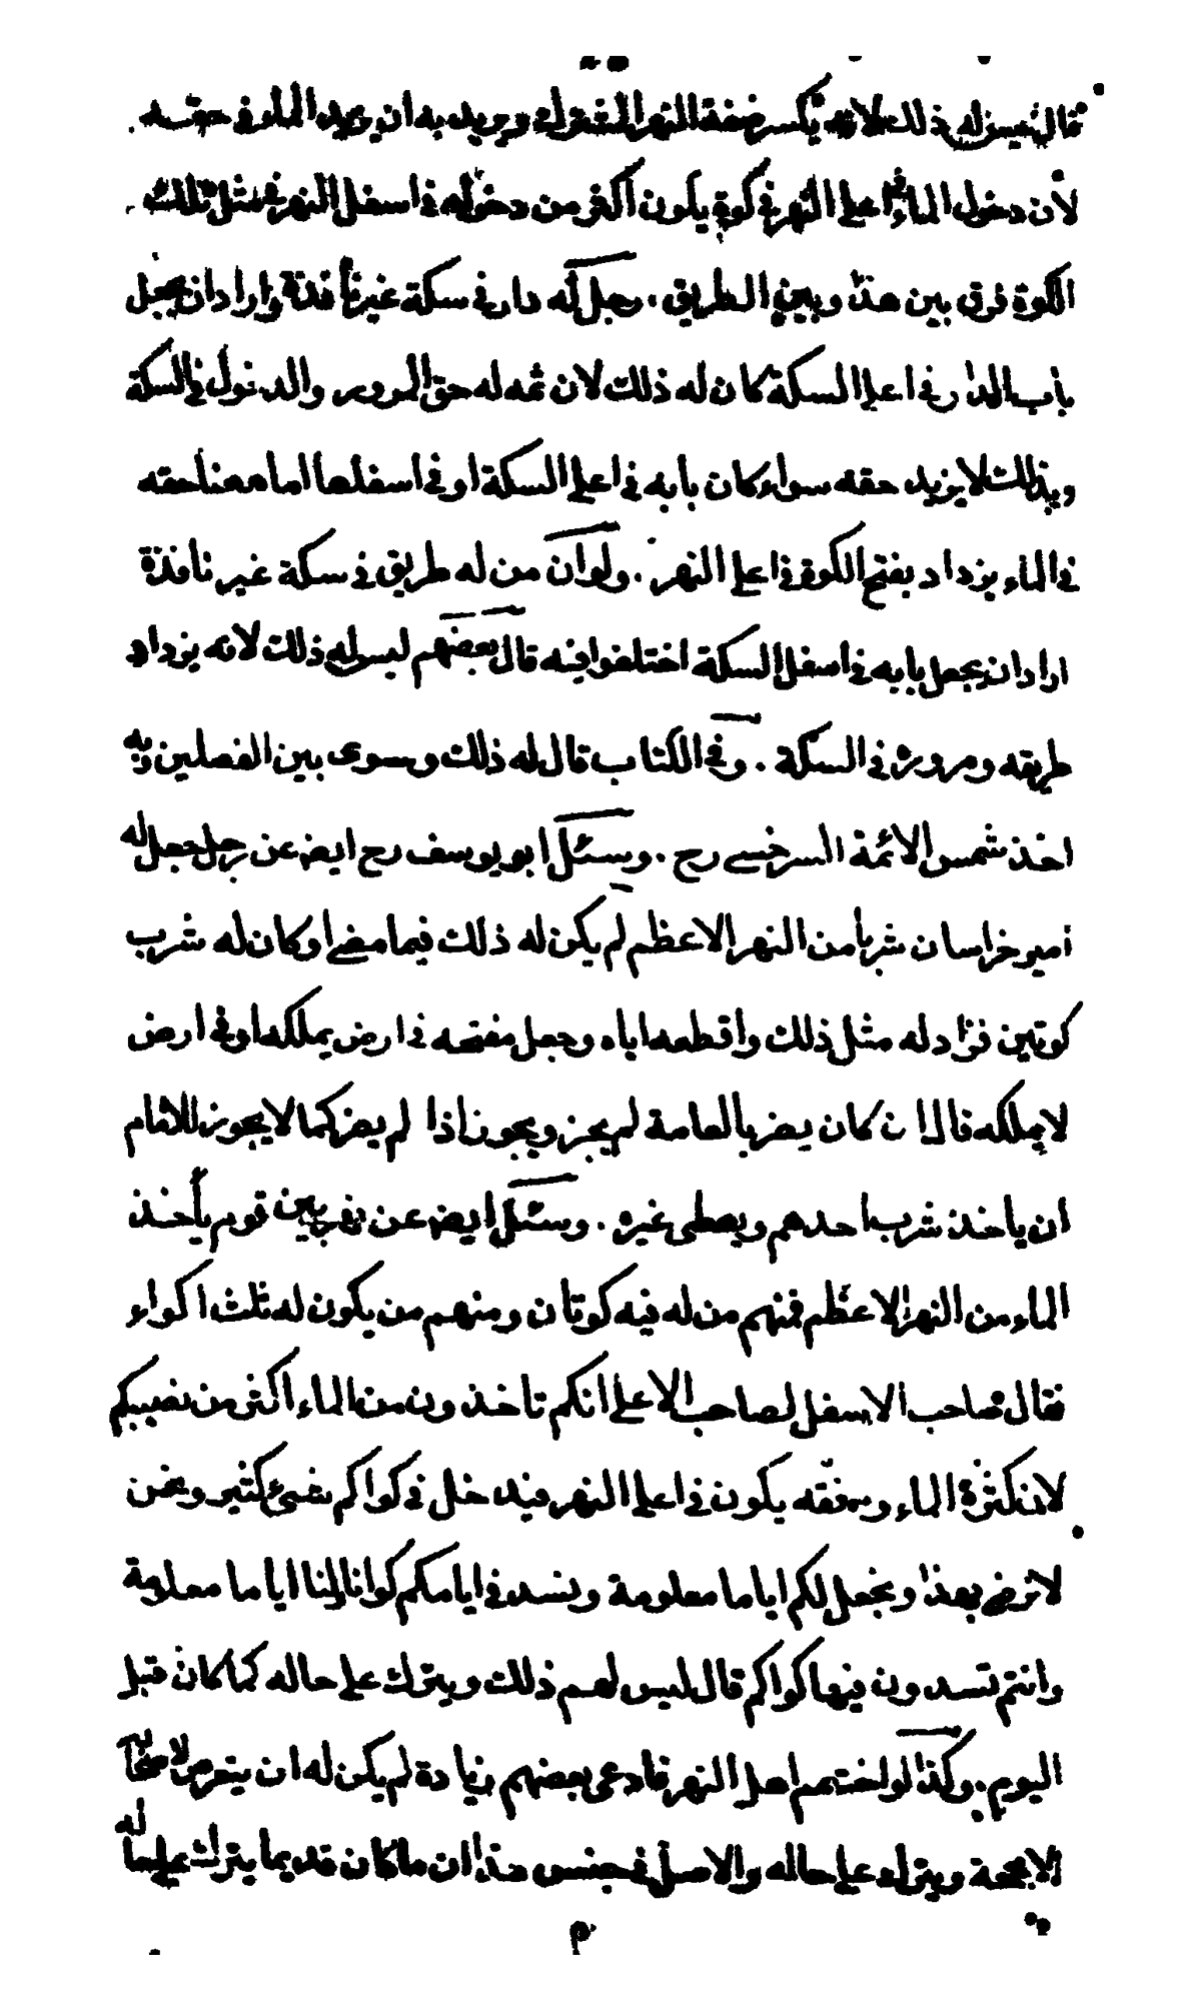 قال ليس له ذلك لانه يكسر ضفة النهر المشترك ويريد به ان يزيد الماء في حقه
لان دخول الماء في اعلى النهر في كوة يكون اكثر من دخوله في اسفل النهر في مثل تلك
الكوة فرق بين هذا وبين الطريق . رجل له دار في سكة غير نافذة وارادان يجعل
باب الدار في اعلى السكة كان له ذلك لان ثمه له حق المرور والدخول في السكة
وبذلك لا يزيد حقه سواء كان بابه في اعلى السكة او في اسفلها اما ههنا حقه
في الماء يزداد بفتح الكوة في اعلى النهر . ولو ان من له طريق في سكة غير نافذة
اراد ان يجعل بابه في اسفل السكة اختلفوا فيه قال بعضهم ليس له ذلك لانه يزداد
طريقه ومروره في السكة . وفي الكتاب قال له ذلك وسوى بين الفصلين وبه
اخذ شمس الائمة السرخسي رح . وسئل ابو يوسف رح ايضا عن رجل جعل له
امير خراسان شربا من النهر الاعظم لم يكن له ذلك فيما مضى او كان له شرب
كوتين فزاد له مثل ذلك واقطعه اياه وجعل مفتحه في ارض يملكه او في ارض
لا يملكه قال ان كان يضر بالعامة لم يجز ويجوز اذا لم يضر كما لا يجوز للامام
ان ياخذ شرب احدهم ويعطى غيره . وسئل ايضا عن نهر بين قوم يأخذ
الماء من النهر الاعظم فمنهم من له فيه كوتان ومنهم من يكون له ثلث اكواء
فقال صاحب الاسفل لصاحب الاعلى انكم تاخذون من الماء اكثر من نصيبكم
لان كثرة الماء ودفقه يكون في اعلى النهر فيدخل في كواكم شيئ كثير ونحن
لا نرضى بهذا ونجعل لكم اياما معلومة ونسد في ايامكم كوانا ولنا اياما معلومة
وانتم تسدون فيها كواكم قال ليس لهم ذلك ويترك على حاله كما كان قبل
اليوم . وكذا لو اختصم اهل النهر فادعى بعضهم زيادة لم يكن له ان يتعرض لاصحابه
الا بحجة ويترك على حاله والاصل في جنس هذا ان ما كان قديما يترك على حاله
م